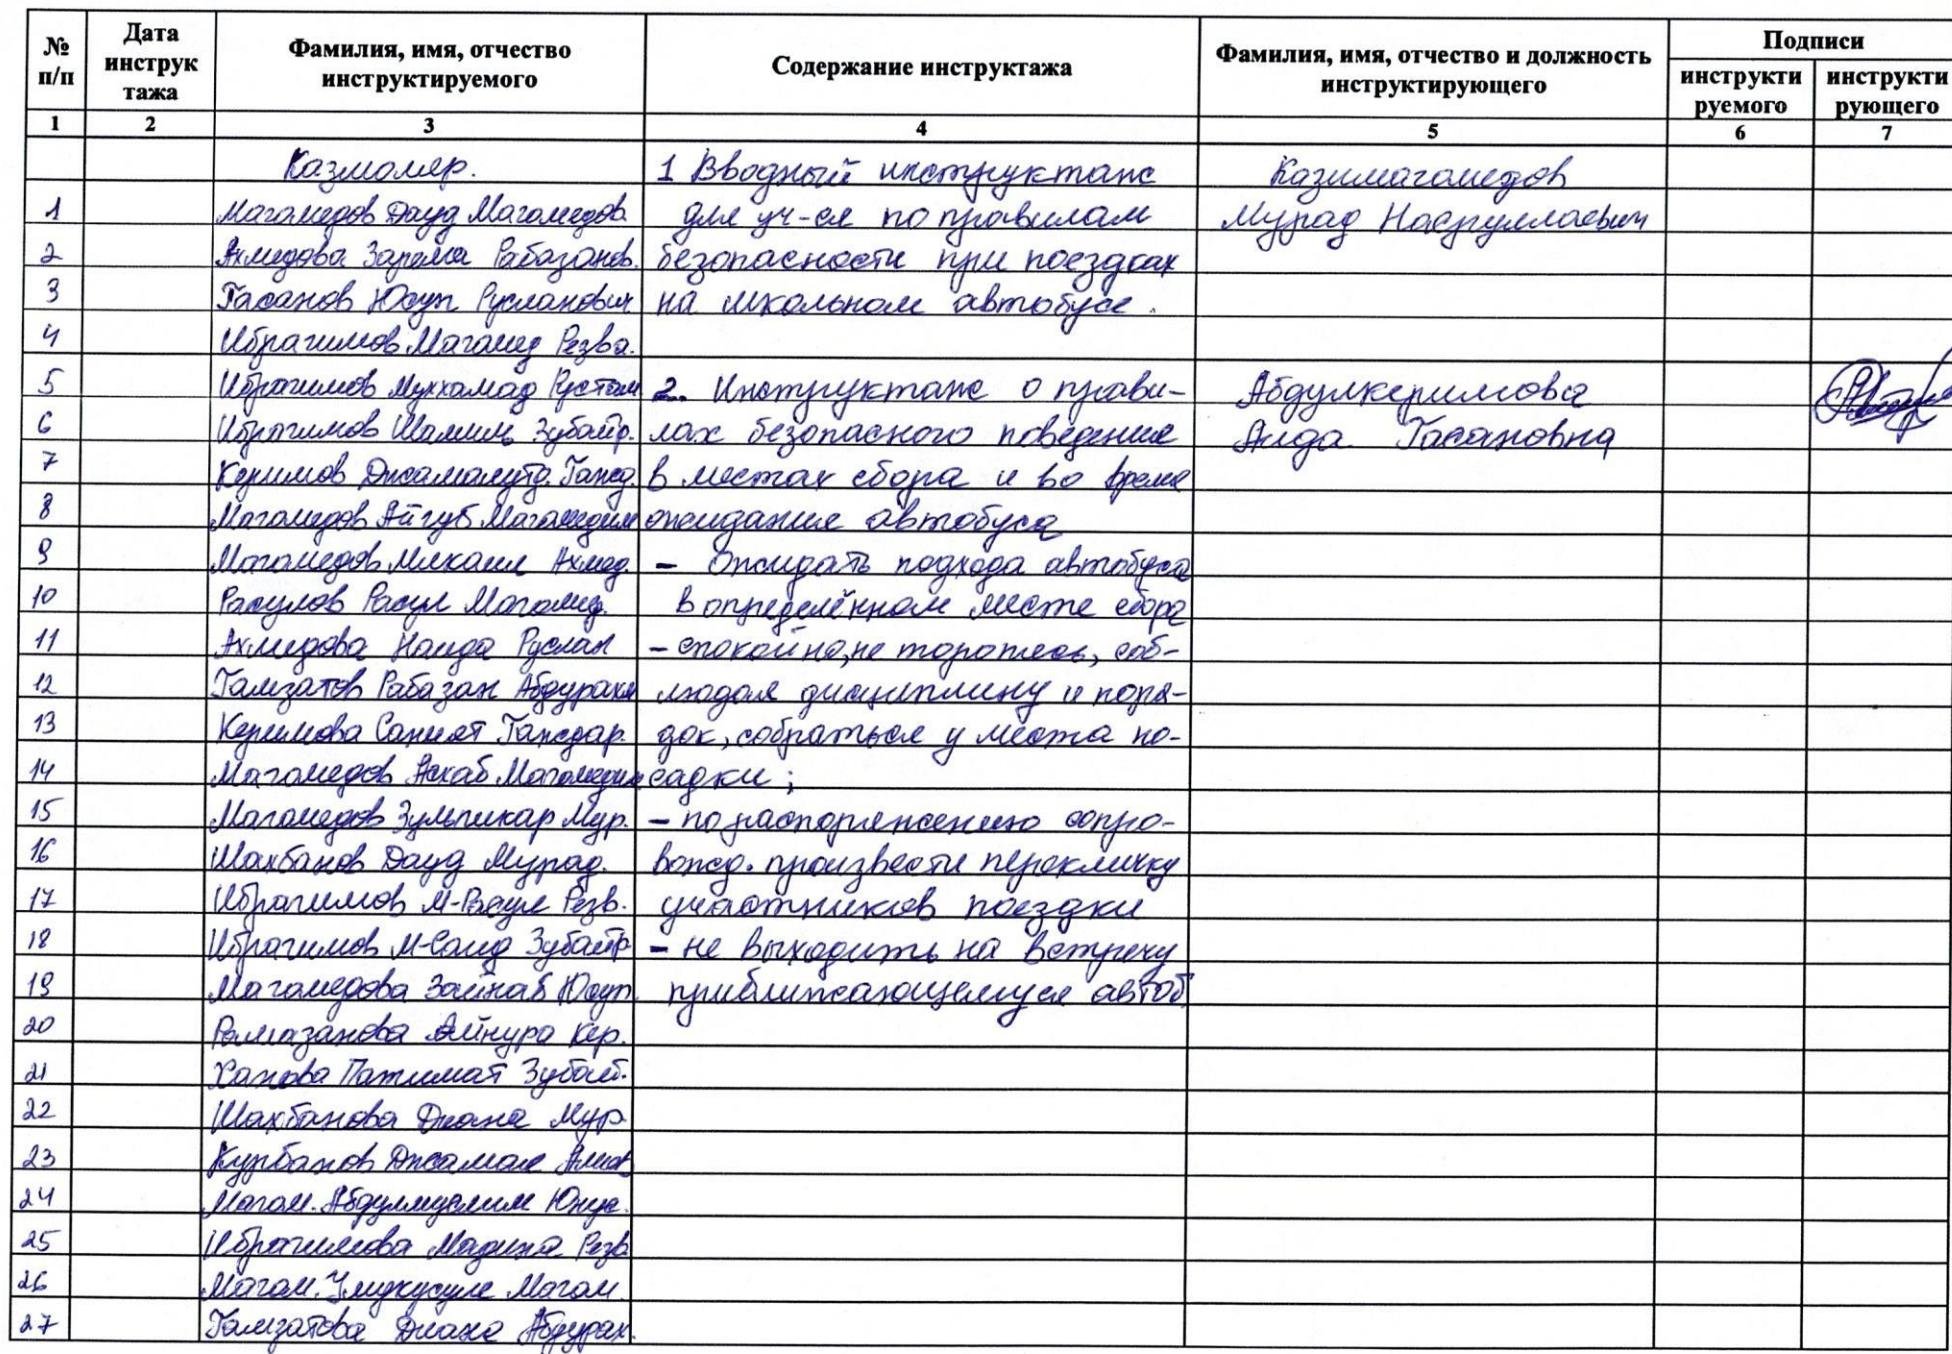 № п/п Дата инструк тажа Фамилия, имя, отчество инструктируемого Содержание инструктажа Фамилия, имя, отчество и должность инструктирующего Подписи инструкти руемого инструкти рующего
1 2 3 4 5 6 7
Казмаляр. 1 Вводный инструктаж Казимагомедов
1 Магомедов Дауд Магомедов. для уч-ся по правилам Мурад Насруллаевич
2 Ахмедова Зарема Рабазанов. безопасности при поездках
3 Гасанов Юсуп Русланович на школьном автобусе.
4 Ибрагимов Магомед Резва.
5 Ибрагимов Мухамад Рустам 2. Инструктаж о прави- Абдулкеримова
6 Ибрагимов Шамиль Зубайр. лах безопасного поведения Аида Гасановна
7 Керимов Джамалутд. Гамд. в местах сбора и во время
8 Магомедов Айгуб Магомедим ожидания автобуса
9 Магомедов Микаил Ахмед. - Ожидать подхода автобуса
10 Расулов Расул Магомед. в определённом месте сбора
11 Ахмедова Наида Руслан - спокойно, не торопясь, соб-
12 Гамзатов Рабазан Абдурахм людая дисциплину и поря-
13 Керимова Саният Гамдар. док, собраться у места по-
14 Магомедов Асхаб Магомедим садки;
15 Магомедов Зульпикар Мур. - по распоряжению сопро-
16 Шахбанов Дауд Мурад. вожд. произвести перекличку
17 Ибрагимов М-Расул Резв. участников поездки
18 Ибрагимов М-Саид Зубайр - не выходить на встречу
19 Магомедова Зайнаб Юсуп. приближающемуся автоб
20 Рамазанова Айнура Кер.
21 Ханова Патимат Зубай.
22 Шахбанова Диана Мур.
23 Курбанов Джамал
24 Магом. Абдулмуслим Юнус.
25 Ибрагимова Мадина Резв
26 Магом. Магом.
27 Гамзатова Диана Абдурах.